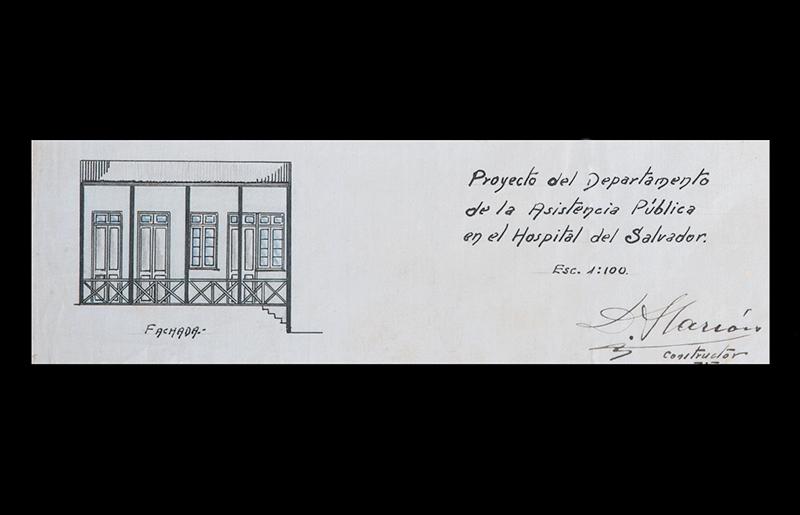 FACHADA.-
Proyecto del Departamento
de la Asistencia Pública
en el Hospital del Salvador.
Esc. 1:100.
Constructor